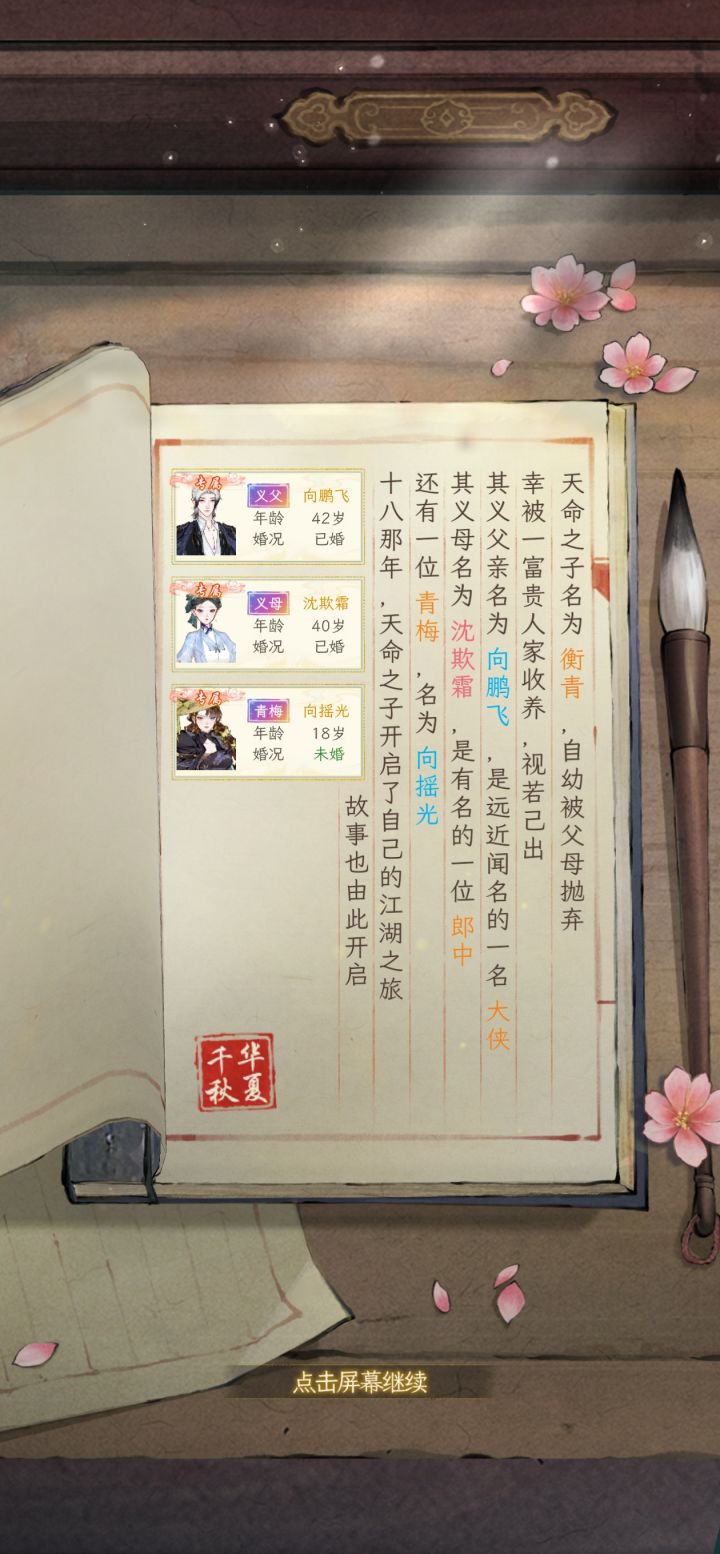 天命之子名为 衡青 ,自幼被父母抛弃
幸被一富贵人家收养,视若己出
其义父亲名为 向鹏飞 ,是远近闻名的一名 大侠
其义母名为 沈欺霜 ,是有名的一位 郎中
还有一位 青梅 ,名为 向摇光
十八那年,天命之子开启了自己的江湖之旅
故事也由此开启
专属
义父 向鹏飞
年龄 42岁
婚况 已婚
专属
义母 沈欺霜
年龄 40岁
婚况 已婚
专属
青梅 向摇光
年龄 18岁
婚况 未婚
华夏
千秋
点击屏幕继续